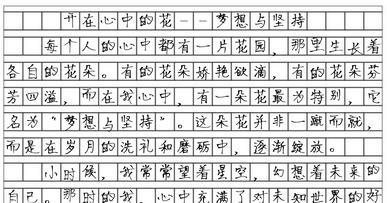 开在心中的花--梦想与坚持
每个人的心中都有一片花园，那里生长着
各自的花朵。有的花朵娇艳欲滴，有的花朵芬
芳四溢，而在我心中，有一朵花最为特别，它
名为“梦想与坚持”。这朵花并非一蹴而就，
而是在岁月的洗礼和磨砺中，逐渐绽放。
小时候，我常常望着星空，幻想着未来的
自己。那时的我，心中充满了对未知世界的好